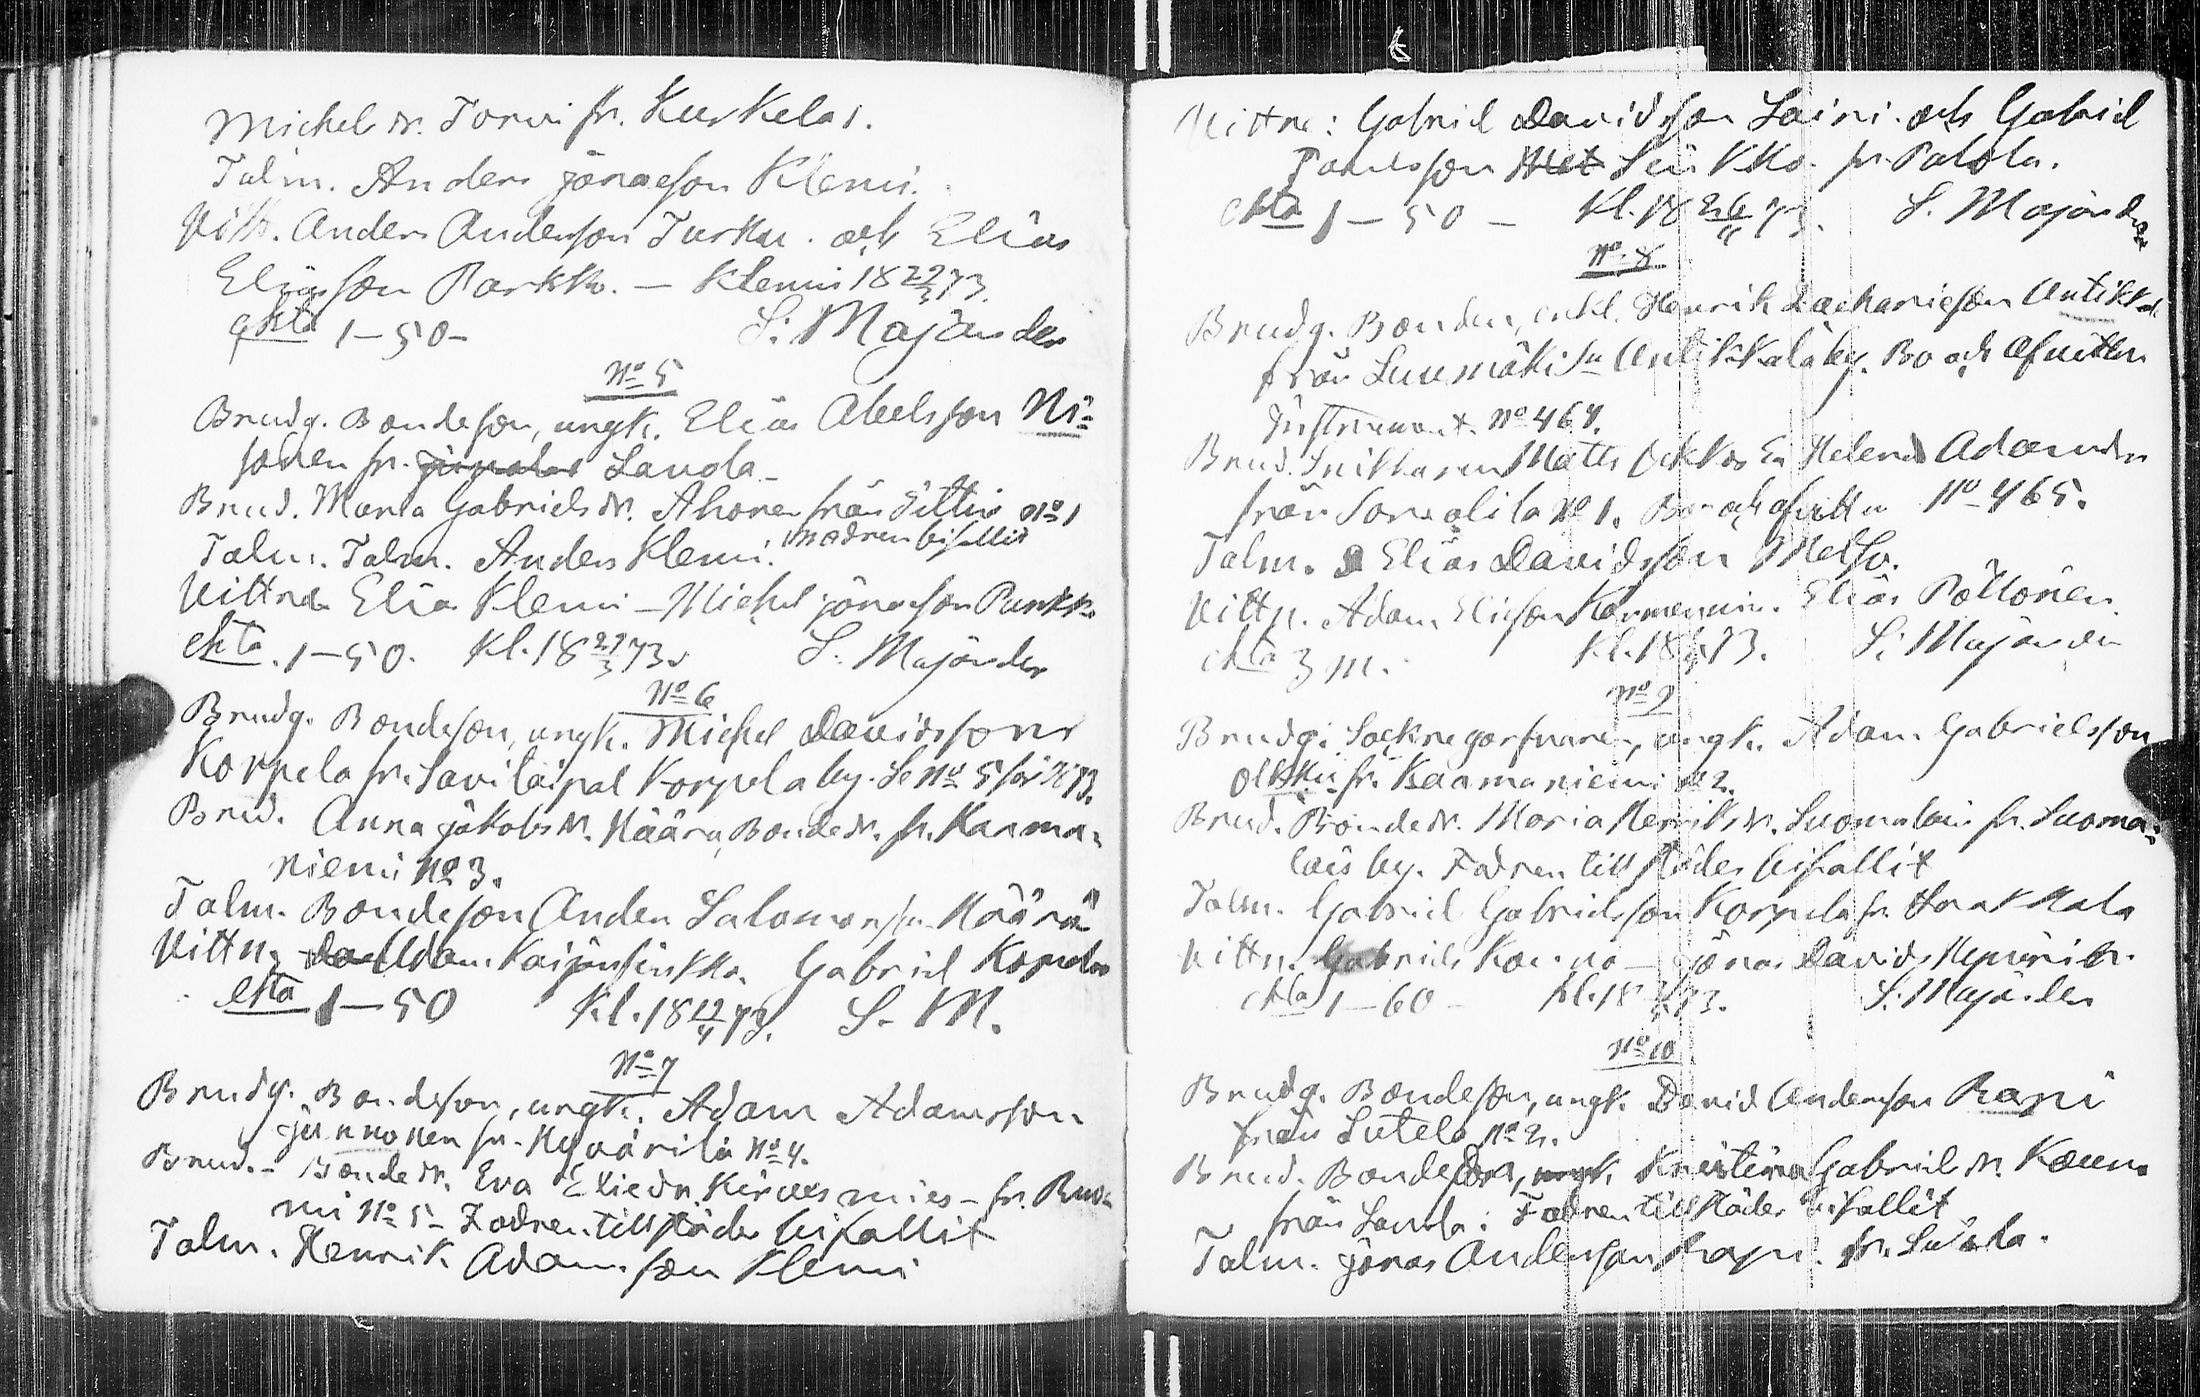 Michels dr. Torvi fr. Kurkela 1.
Talm. Anders Jönasson Klemi.
Vittn. Anders Andersson Turku. och Elias
Eliasson Parkko. — Klemis 18 22/3 73.
ekta 1–50– S. Majander
No 5
Brudg. Bondeson, ungk. Elias Abelsson Ni-
ronen fr. Lavola
Brud. Maria Gabriels dr. Ahonen från Eittis No 1
modren bifallit
Talm. Talm. Anders Klemi.
Vittne Elia Klemi – Michel Jönasson Parkko
ekta. 1–50. Kl. 18 27/3 73. S. Majander
No 6
Brudg. Bondeson, ungk. Michel Davidsson
Korpela fr. Savitaipal Korpela by. Se No 5 för 1873.
Brud. Anna Jakobs dr. Näärä Bonde dr. fr. Karma-
niemi No 3.
Talm. Bondeson Anders Salomonsson Näärä
Vittn. Adam Kaijansinkko. Gabriel Korpela
ekta 1–50 Kl. 18 12/4 73. S. M.
No 7
Brudg. Bondeson, ungk. Adam Adamsson
Junnonen fr. Hyvärilä No 4.
Brud. – Bonde dr. Eva Elie dr. Kirvesmies – fr. Ruo-
mi No 5 – Fadren tillstädes bifallit
Talm. Henrik Adamsson Klemi
Vittne: Gabriel Davidsson Saini. och Gabriel
Paulsson Sinkko. fr. Patola.
ekta 1–50 – Kl. 18 26/4 73. S. Majander
No 8
Brudg. Bonden, enkl. Henrik Zachariesson Anttikka
från Luumäki sn Anttikkala by. Bo och afvittr.
Instrument. No 464.
Brud. Snikkaren Matts Enka Helena Adams dr
från No 1. Bo och afvittr. No 465.
Talm. Elias Davidsson Melso.
Vittn. Adam Eliesson Karmeniemi. Elias Pöllönen
ekta 3 M. Kl. 18 73. S. Majander
No 9
Brudg. Sockne garfvaren, ungk. Adam Gabrielsson
Olkku fr. Kaamaniemi No 2.
Brud. Bonde dr. Maria Henriks dr. Suomalain fr. Suoma-
lais by. Fadren tillstädes bifallit
Talm. Gabriel Gabrielsson Korpela fr. Harakkala
Vittn. Gabriel – Jönas Davids
ekta 1–60 – Kl. 18 73. S. Majander
No 10
Brudg. Bondeson, ungk. David Andersson Rapi
från Lutela No 2.
Brud. Kristina Gabriels dr.
från Lavola. Fadren tillstädes bifallit
Talm. Jönas Andersson Rapi. fr.